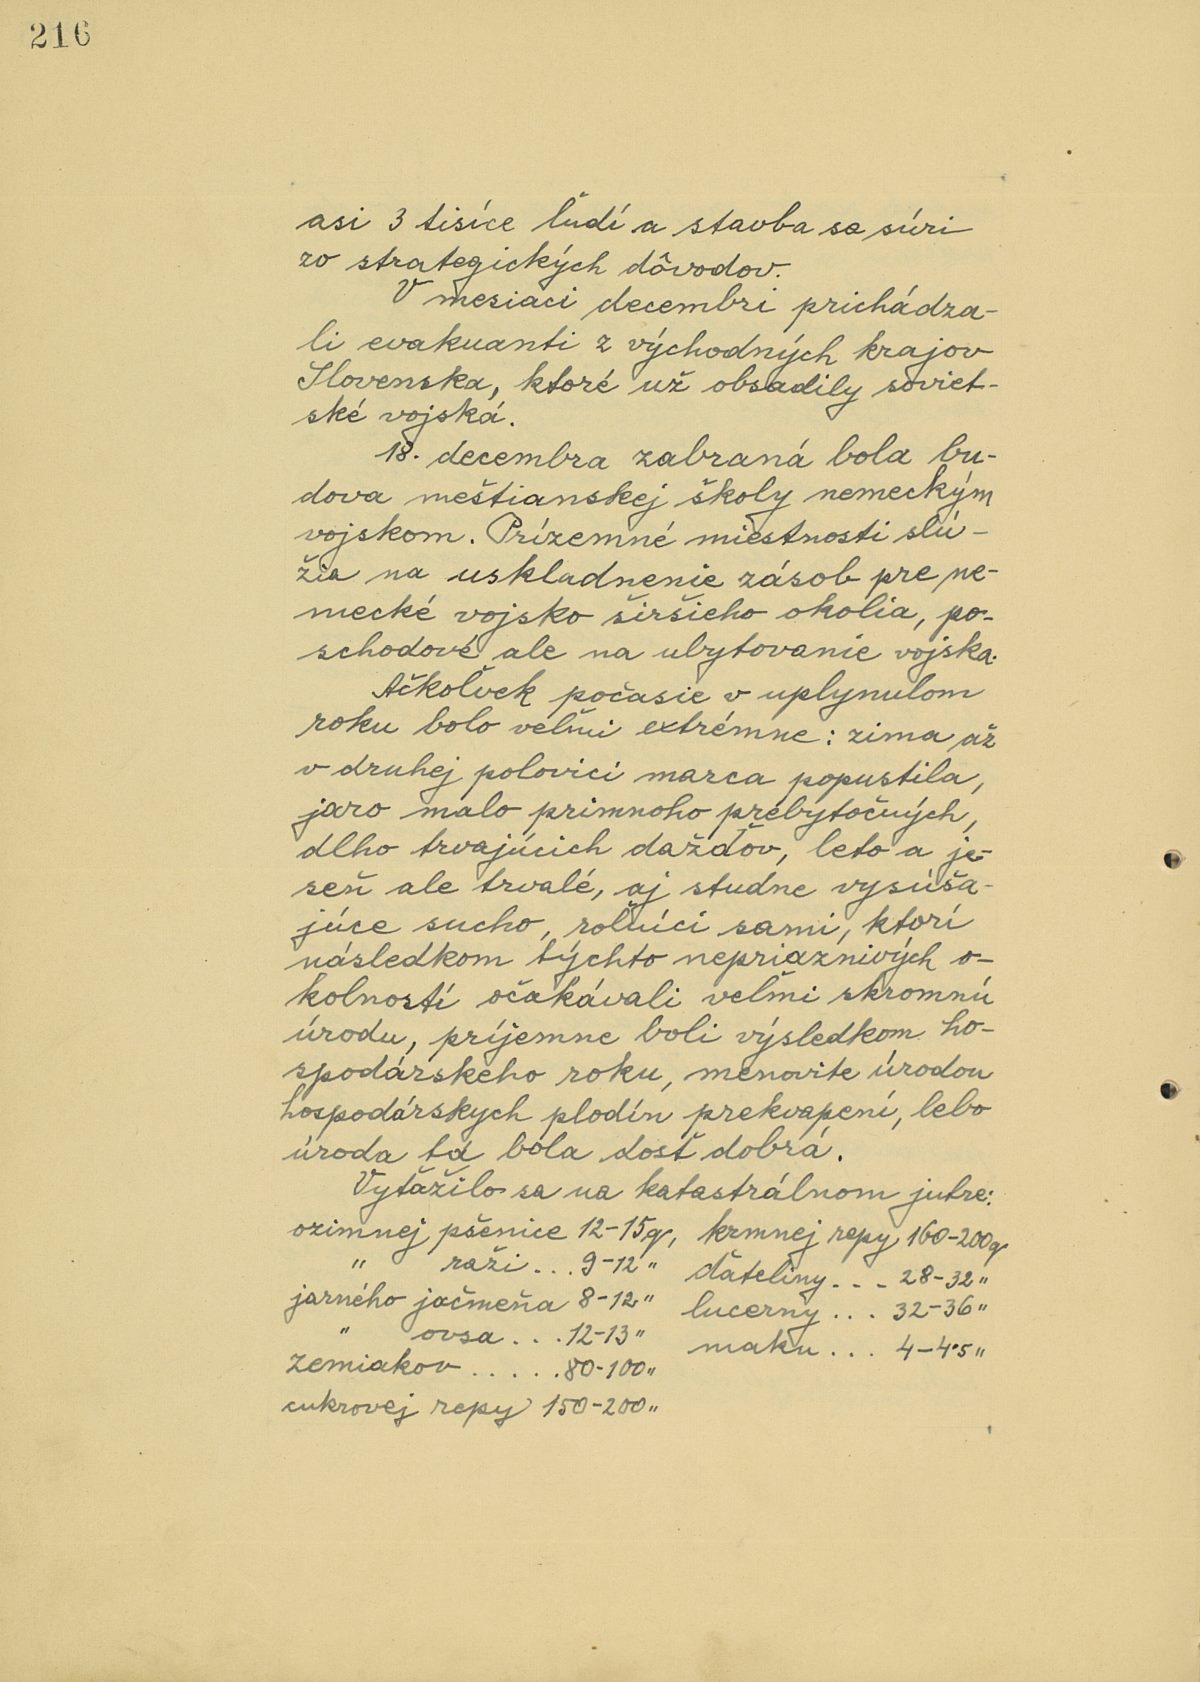 216
asi 3 tisíce ľudí a stavba sa súri
zo strategických dôvodov.
V mesiaci decembri prichádza-
li evakuanti z východných krajov
Slovenska, ktoré už obsadily soviet-
ské vojská.
18. decembra zabraná bola bu-
dova meštianskej školy nemeckým
vojskom. Prízemné miestnosti slú-
žia na uskladnenie zásob pre ne-
mecké vojsko širšieho okolia, po-
schodové ale na ubytovanie vojska.
Ačkoľvek počasie v uplynulom
roku bolo veľmi extrémne: zima až
v druhej polovici marca popustila,
jaro malo primnoho prebytočných,
dlho trvajúcich dažďov, leto a je-
seň ale trvalé, aj studne vysúša-
júce sucho, roľníci sami, ktorí
následkom týchto nepriaznivých o-
kolností očakávali veľmi skromnú
úrodu, príjemne boli výsledkom ho-
spodárskeho roku, menovite úrodou
hospodárskych plodín prekvapení, lebo
úroda tá bola dosť dobrá.
Vyťažilo sa na katastrálnom jutre:
ozimnej pšenice 12-15q, krmnej repy 160-200q
" raži... 9-12" ďateliny... 28-32"
jarného jačmeňa 8-12" lucerny... 32-36"
" ovsa... 12-13" maku... 4-4·5"
zemiakov..... 80-100"
cukrovej repy 150-200"